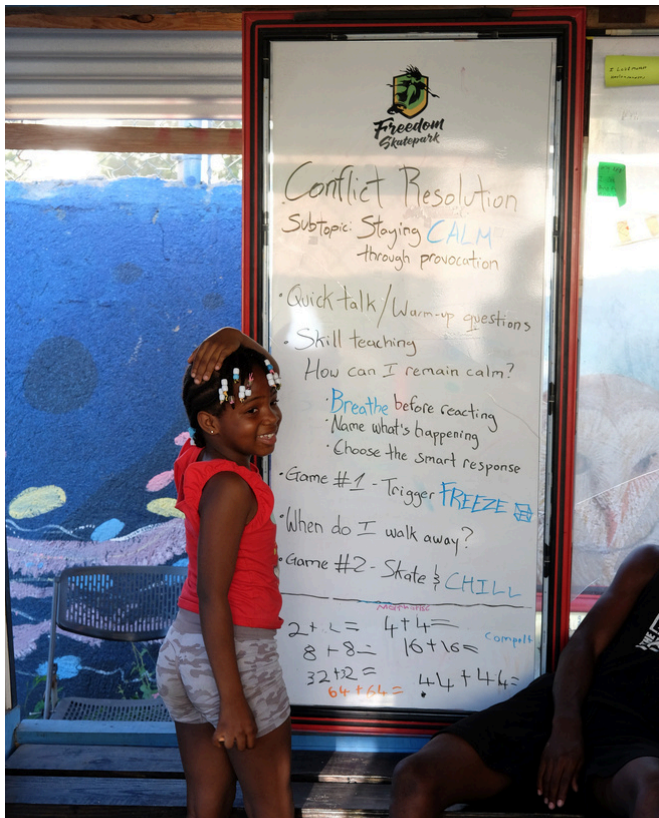 Freedom
Skatepark
Conflict Resolution
Subtopic: Staying CALM
through provocation
• Quick talk/Warm-up questions
• Skill teaching
How can I remain calm?
• Breathe before reacting
• Name what's happening
• Choose the smart response
• Game #1 - Trigger FREEZE
• When do I walk away?
• Game #2 - Skate & CHILL
2+2= 4+4=
8+8= 16+16=
32+32=
64+64= 44+44=
THE